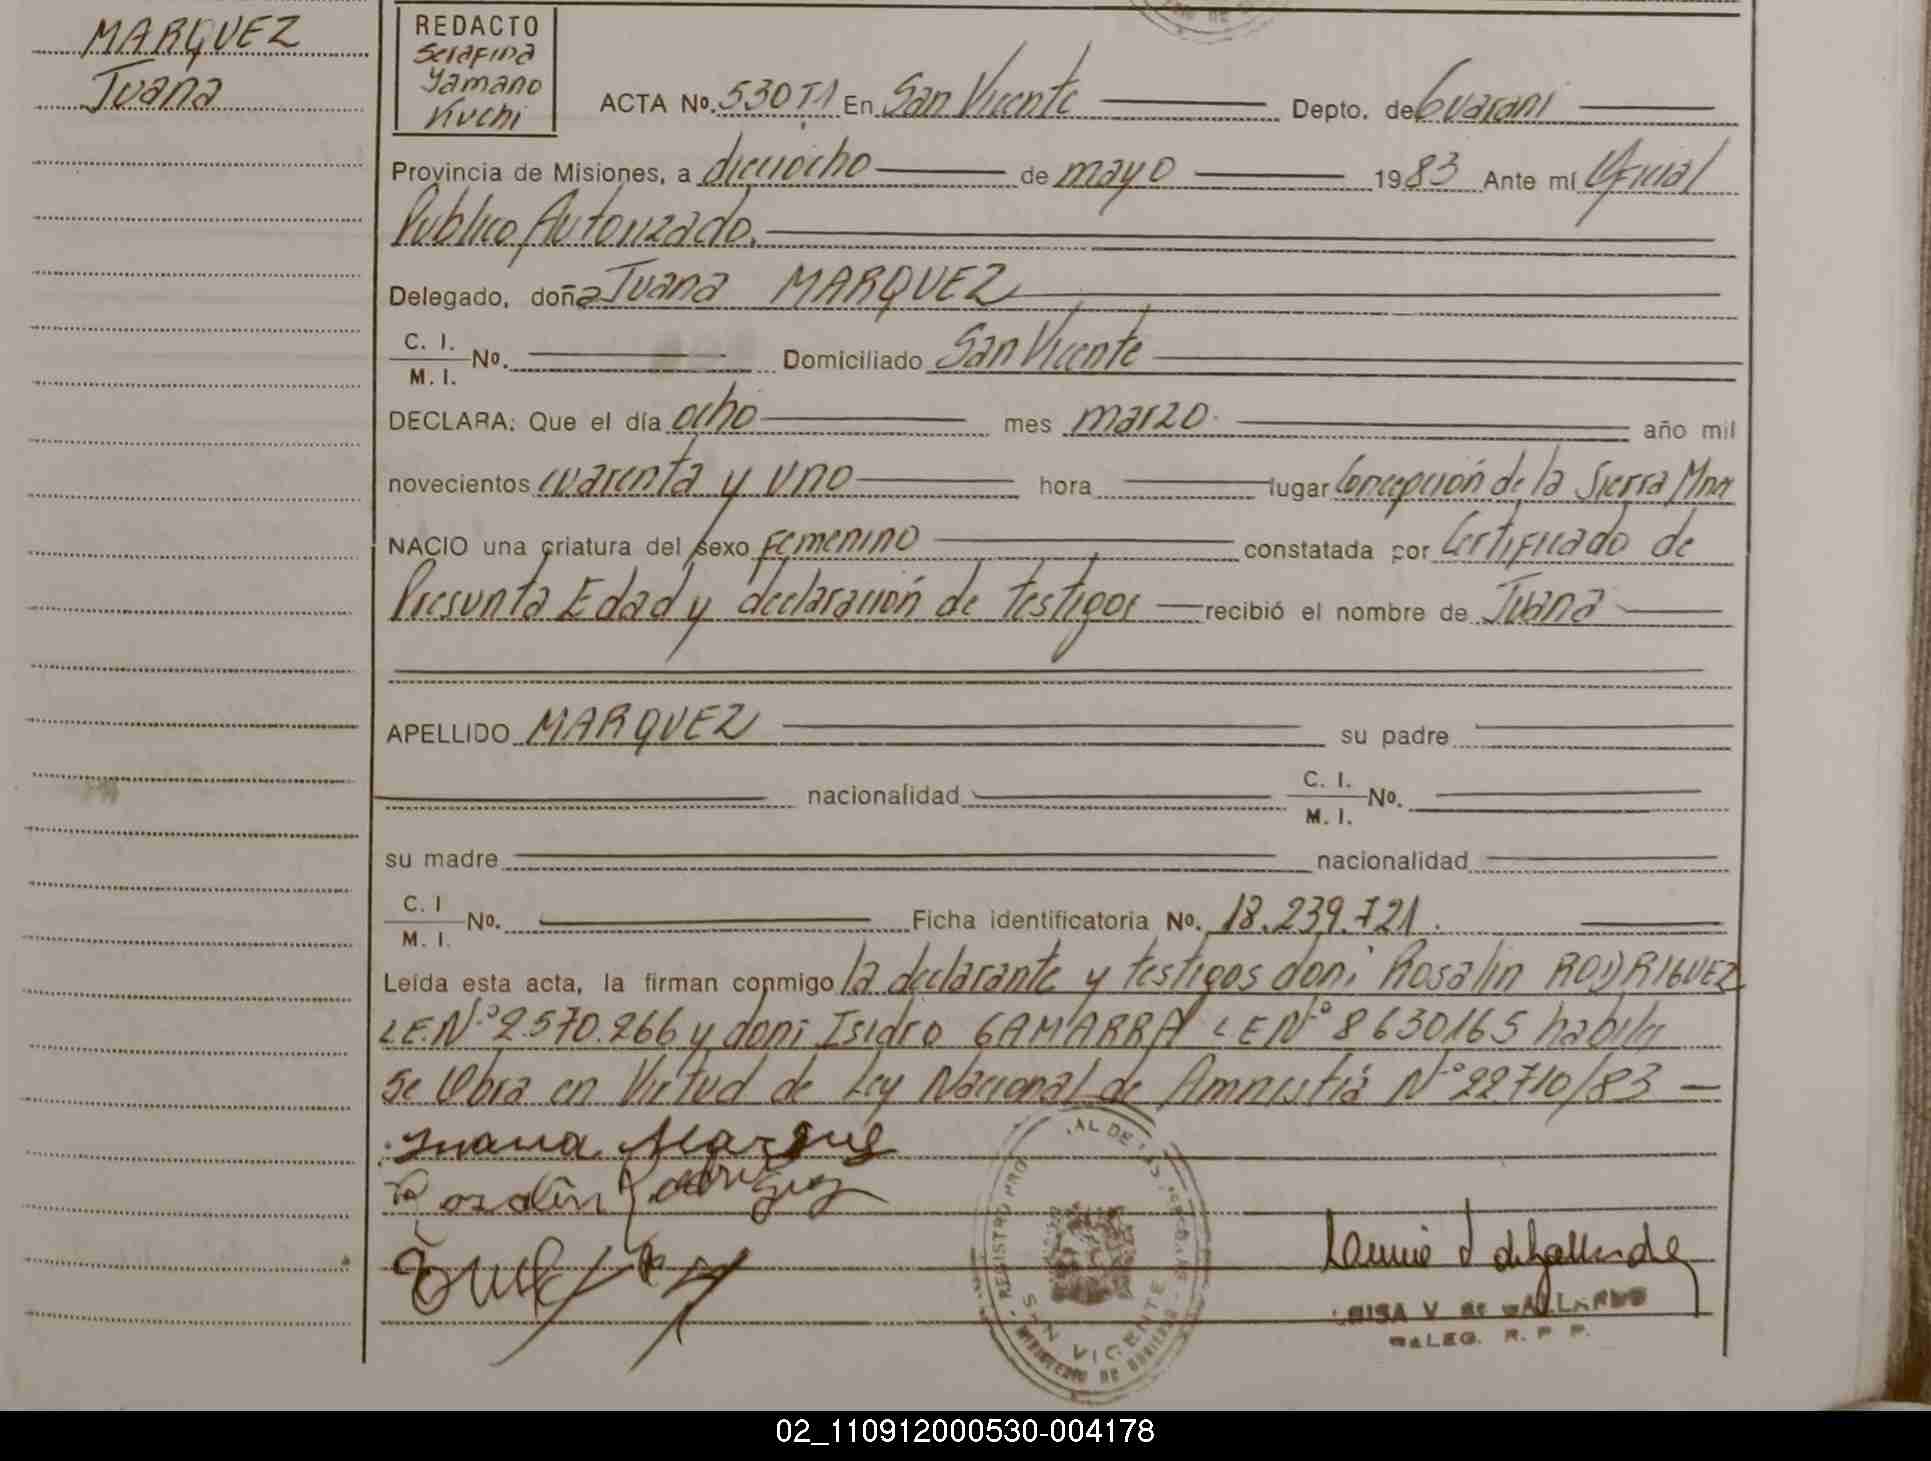 MARQUEZ
Juana
REDACTO
Serafina
Yamano
Kiuchi
ACTA Nº. 530 T1 En San Vicente Depto. de Guaraní
Provincia de Misiones, a dieciocho de mayo 1983 Ante mí Oficial
Publico Autorizado.
Delegado, doña Juana MARQUEZ
C. I.
M. I. Nº. Domiciliado San Vicente
DECLARA: Que el día ocho mes marzo año mil
novecientos cuarenta y uno hora lugar Concepción de la Sierra Mnes
NACIO una criatura del sexo femenino constatada por Certificado de
Presunta Edad y declaración de testigos recibió el nombre de Juana
APELLIDO MARQUEZ su padre
nacionalidad C. I.
M. I. Nº.
su madre nacionalidad
C. I
M. I. Nº. Ficha identificatoria Nº. 18.239.721.
Leída esta acta, la firman conmigo la declarante y testigos don: Rosalin RODRIGUEZ
L.E.Nº 2.570.266 y don: Isidro GAMARRA L E Nº 8630165 habila
Se Obra en Virtud de Ley Nacional de Amnistiá Nº 22710/83
Juana Marquez
Rosalin Rodriguez
REGISTRO PRO AL DE LAS PERSONAS
SAN VICENTE
MINISTERIO DE GOBIERNO
V de GALLARDO
DELEG. R. P. P.
02_110912000530-004178